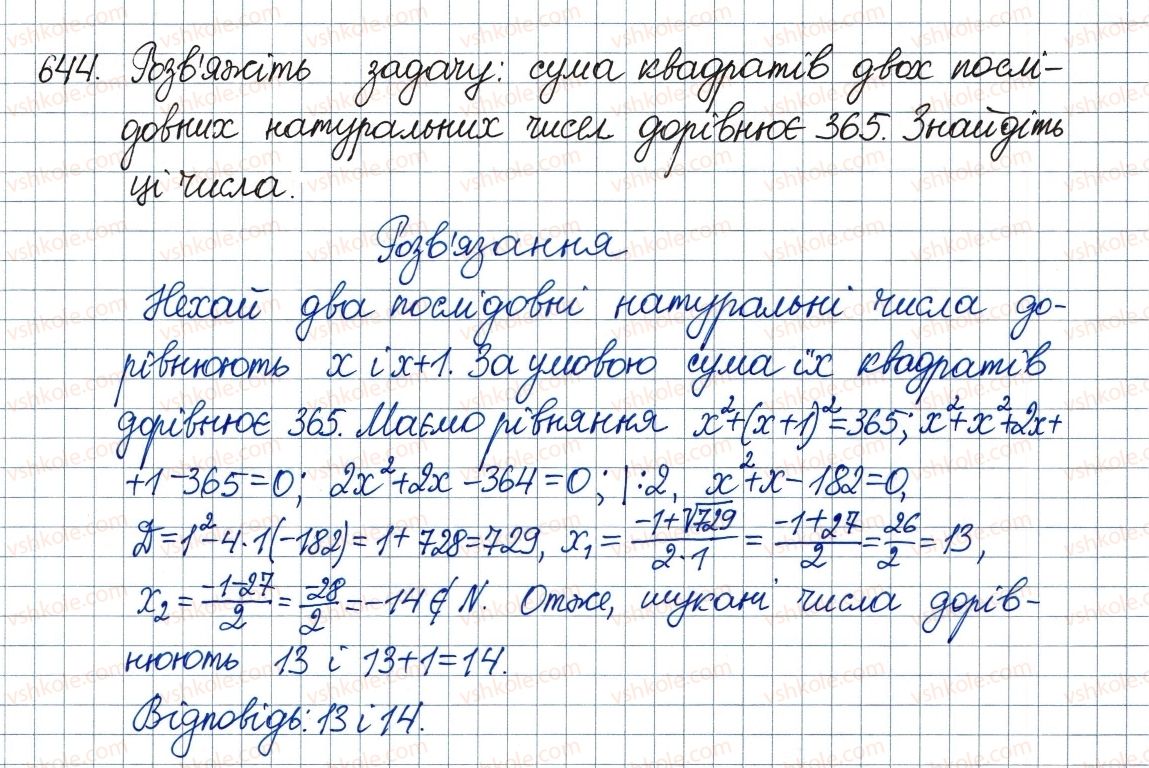 644. Розв'яжіть задачу: сума квадратів двох послі-
довних натуральних чисел дорівнює 365. Знайдіть
ці числа.
Розв'язання
Нехай два послідовні натуральні числа до-
рівнюють x і x+1. За умовою сума їх квадратів
дорівнює 365. Маємо рівняння x²+(x+1)²=365; x²+x²+2x+
+1-365=0; 2x²+2x-364=0; |:2, x²+x-182=0,
D=1²-4·1(-182)=1+728=729, x₁=(-1+√729)/(2·1)=(-1+27)/2=26/2=13,
x₂=(-1-27)/2=-28/2=-14∉N. Отже, шукані числа дорів-
нюють 13 і 13+1=14.
Відповідь: 13 і 14.